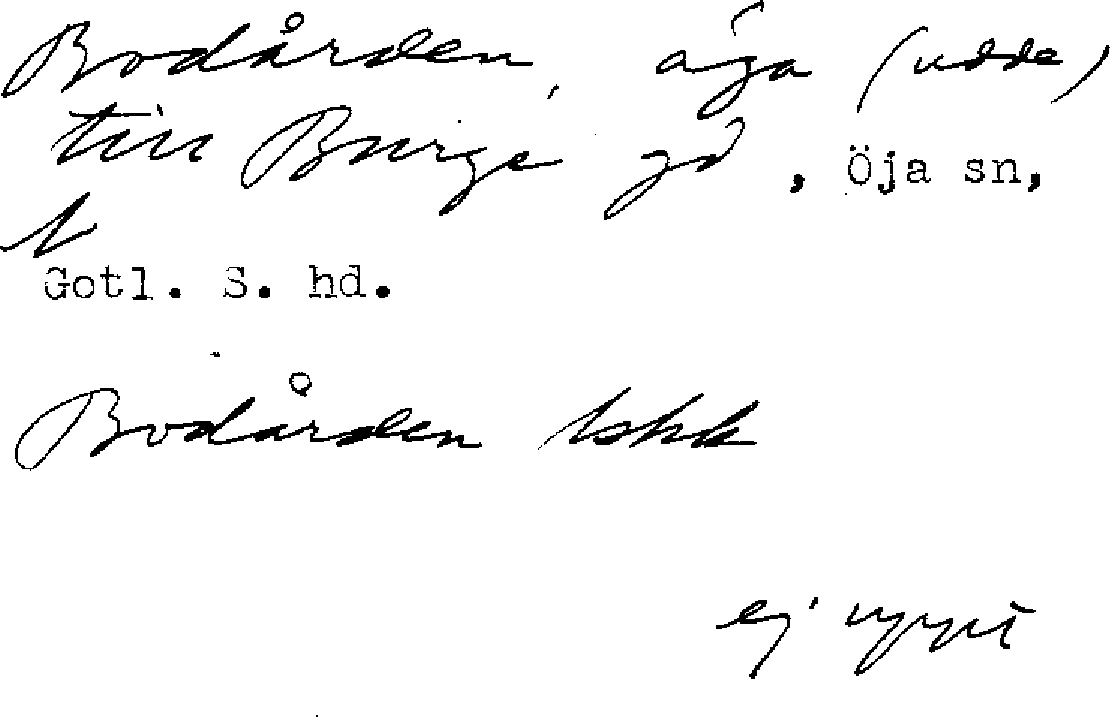 Bodården, äga (udde)
till Burge gd, Öja sn,
Gotl. S. hd.
Bodården
ej uppt